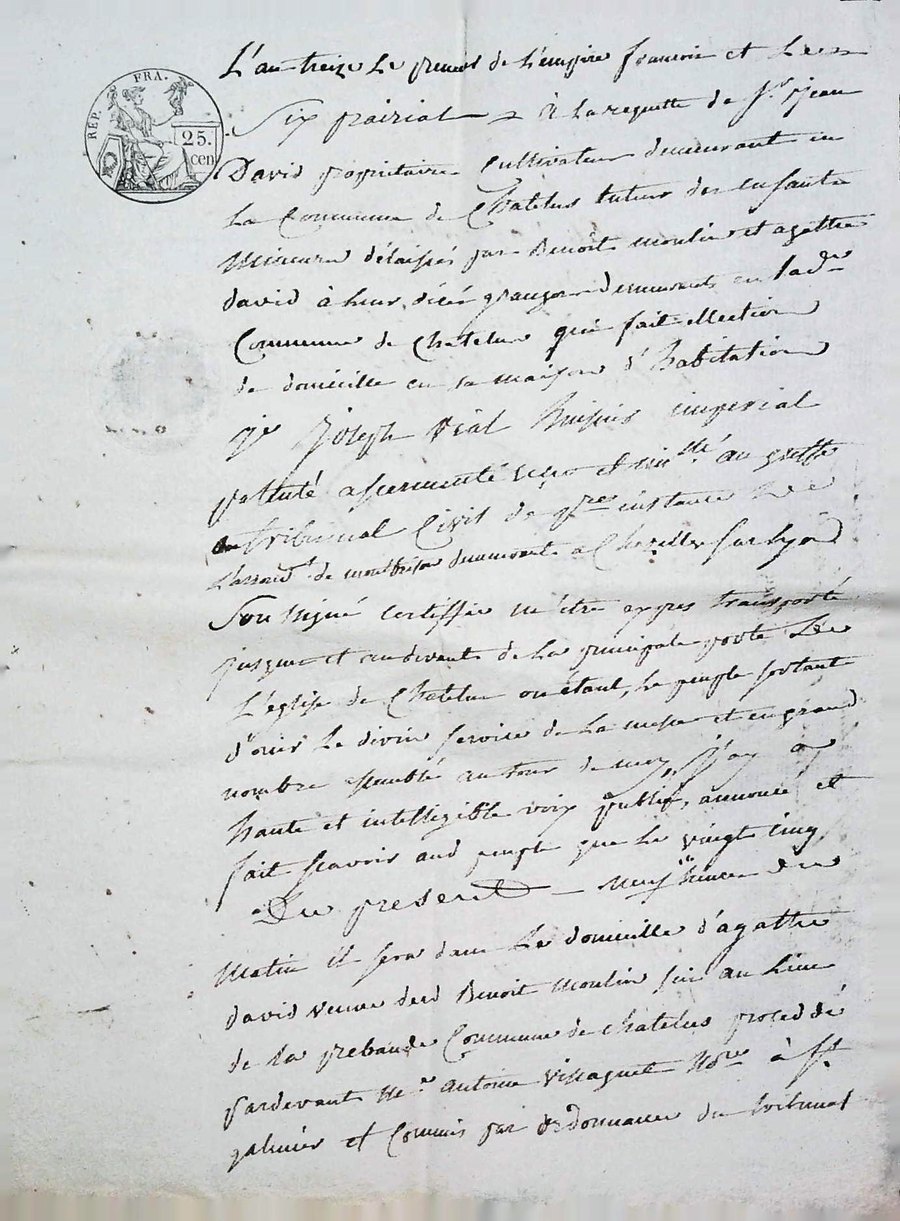 RÉP. FRA.
25.
cen
L'an treize le premier de l'empire francois et le
Six prairial à la requette de Sr. jean
David propriétaire Cultivateur demeurant en
la Commune de Chatelus tuteur des enfants
mineurs délaissés par Benoit moulin et agathe
david à leur décés grangers demeurants en lade
Commune de Chatelus qui fait ellection
de domicille en sa maison d'habitation
je joseph vial huissier imperial
patenté assermenté reçu et imlé au greffe
du tribunal Civil de pre instance de
L'arrondt de montbrison demeurant a Chazelle sur lyon
Soussigné certiffie m'être expres transporté
jusques et audevant de la principale porte de
L'église de Chatelus ou étant, le peuple sortant
d'ouir le divin service de la messe et en grand
nombre assemblé autour de moy, j'ay a
haute et intelligible voix publié, annoncé et
fait scavoir aud peuple que le vingt cinq
Du present neuf heures du
Matin il sera dans le domicille d'agathe
david veuve dud Benoit moulin sis au lieu
de la prebande Commune de chatelus procedé
pardevant Me antoine Nore à St
galmier et commis par ordonnance du tribunal